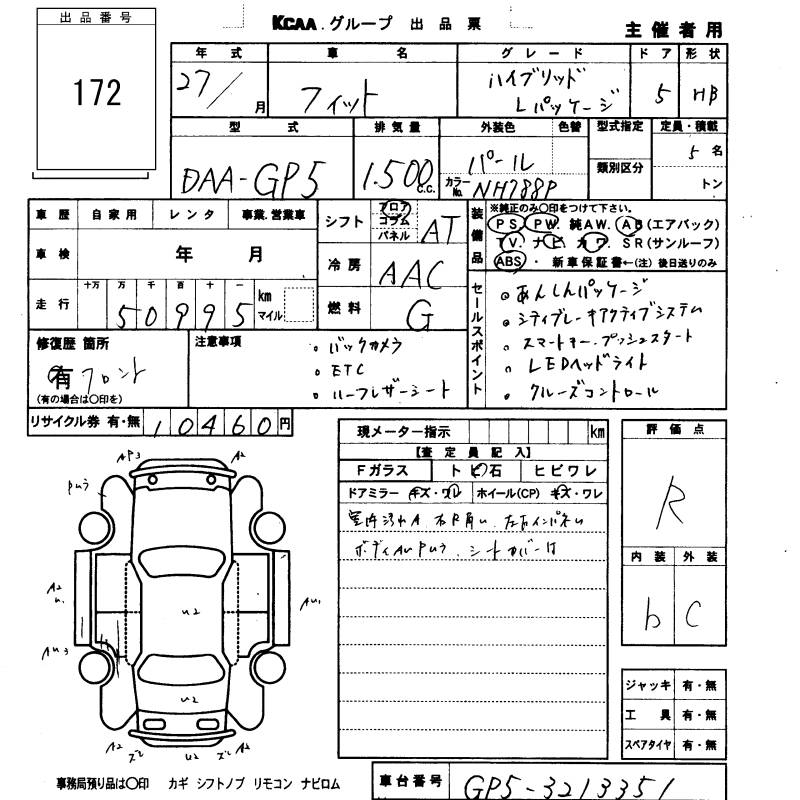 出品番号
172
KCAA.グループ 出品票
主催者用
年式 車名 グレード ドア 形状
27/ 月 フィット ハイブリッド Lパッケージ 5 HB
型式 排気量 外装色 色替 型式指定 定員・積載
DAA-GP5 1.500 c.c. パール 類別区分 5名
カラーNo. NH788P トン
車歴 自家用 レンタ 事業.営業車
シフト フロア コラム パネル AT
車検 年 月
冷房 AAC
走行 十万 万 千 百 十 一 km マイル
50995
燃料 G
装備品 ※純正のみ○印をつけて下さい。
PS PW 純AW. AB(エアバック)
TV. ナビ カワ SR(サンルーフ)
ABS・ 新車保証書←(注)後日送りのみ
セールスポイント
。あんしんパッケージ
。シティブレーキアクティブシステム
。スマートキー.プッシュスタート
。LEDヘッドライト
。クルーズコントロール
修復歴 箇所
有 フロント
(有の場合は○印を)
注意事項
。バックカメラ
。ETC
。ハーフレザーシート
リサイクル券 有・無 10460円
現メーター指示 km
【査定員記入】
Fガラス トビ石 ヒビワレ
ドアミラー キズ・ワレ ホイール(CP) キズ・ワレ
室内汚れA
シートカバー付
評価点
R
内装 外装
b C
AP3 A2
A2
AU1
U2
AU3
U2
A2 U2 A2
ジャッキ 有・無
工具 有・無
スペアタイヤ 有・無
事務局預り品は○印 カギ シフトノブ リモコン ナビロム
車台番号 GP5-3213351